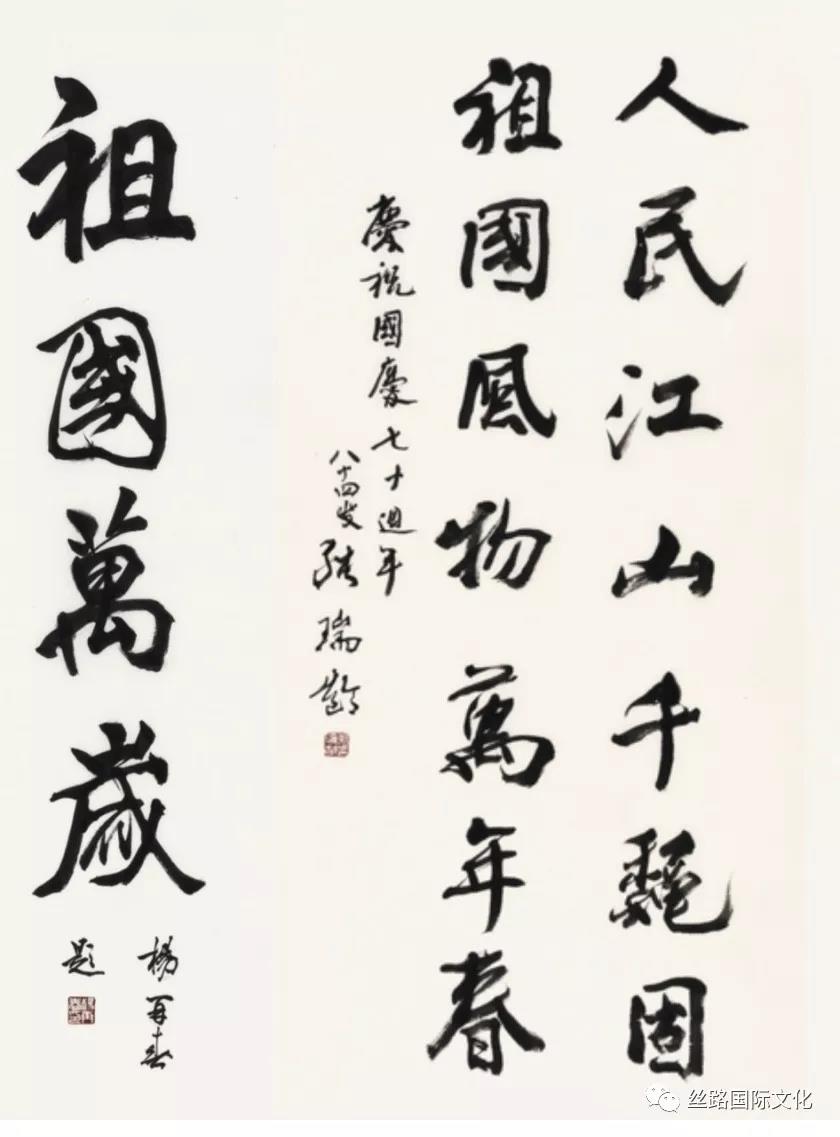 人民江山千龝固
祖國風物萬年春
慶祝國慶七十週年
八十四叟張瑞齡
祖國萬歲
楊再春
題
丝路国际文化